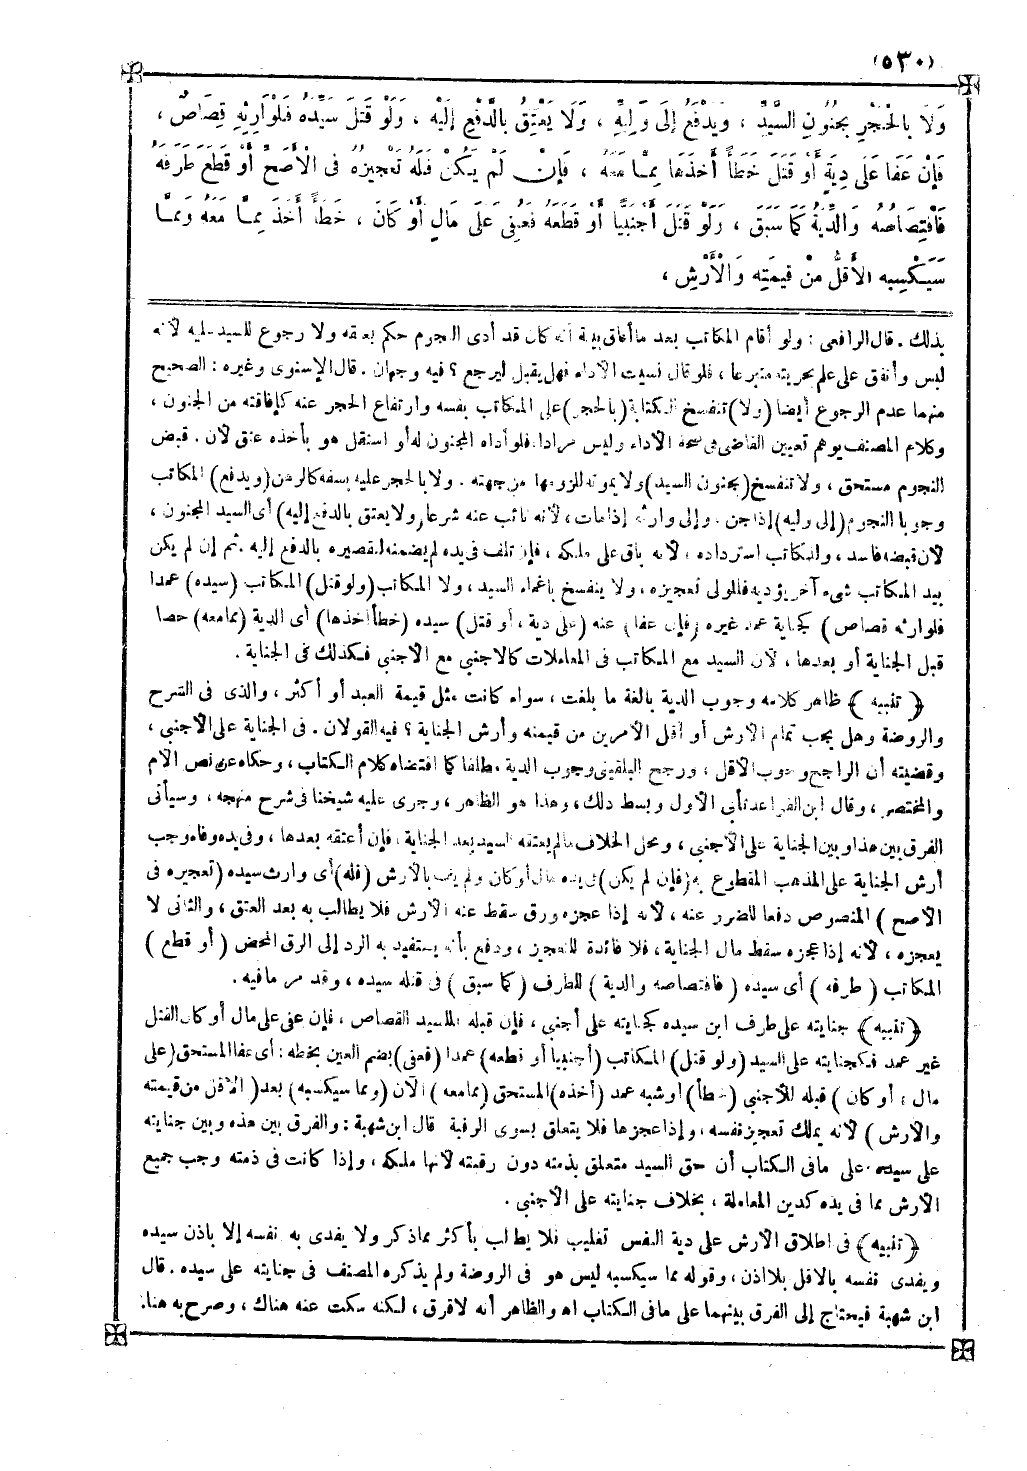 (٥٣٠)
وَلَا بِالْحَجْرِ بِجُنُونِ السَّيِّدِ ، وَيَدْفَعُ إِلَى وَلِيِّهِ ، وَلَا يَعْتِقُ بِالدَّفْعِ إِلَيْهِ ، وَلَوْ قَتَلَ سَيِّدَهُ فَلِوَارِثِهِ قِصَاصٌ ،
فَإِنْ عَفَا عَلَى دِيَةٍ أَوْ قَتَلَ خَطَأً أَخَذَهَا مِمَّا مَعَهُ ، فَإِنْ لَمْ يَكُنْ فَلَهُ تَعْجِيزُهُ فِى الْأَصَحِّ أَوْ قَطَعَ طَرَفَهُ
فَاقْتِصَاصُهُ وَالدِّيَةُ كَمَا سَبَقَ ، وَلَوْ قَتَلَ أَجْنَبِيًّا أَوْ قَطَعَهُ فَعُفِىَ عَلَى مَالٍ أَوْ كَانَ ، خَطَأً أَخَذَ مِمَّا مَعَهُ وَمِمَّا
سَيَكْسِبُهُ الْأَقَلَّ مِنْ قِيمَتِهِ وَالْأَرْشِ ،
بذلك . قال الرافعى : ولو أقام المكاتب بعد ما أعاق بينة أنه كان قد أدى النجوم حكم بعتقه ولا رجوع للسيد عليه لأنه
لبس وأنفق على علم بحريته متبرعا ، فلو قال نسيت الأداء فهل يقبل ليرجع ؟ فيه وجهان . قال الإسنوى وغيره : الصحيح
منهما عدم الرجوع أيضا (ولا) تنفسخ الكتابة (بالحجر) على المكاتب بسفه وارتفاع الحجر عنه كإفاقته من الجنون ،
وكلام المصنف يوهم تعيين القاضى فى صحة الأداء وليس مرادا ، فلو أداه المجنون له أو استقل هو بأخذه عتق لأن . قبض
النجوم مستحق ، ولا تنفسخ (بجنون السيد) ولا بموته للزومها من جهته . ولا بالحجر عليه بسفه كالرهن (ويدفع) المكاتب
وجوبا النجوم (إلى وليه) إذا جن ، وإلى وارثه إذا مات ، لأنه نائب عنه شرعا (ولا يعتق بالدفع إليه) أى السيد المجنون ،
لأن قبضه فاسد ، وللمكاتب استرداده ، لأنه باق على ملكه ، فإن تلف فى يده لم يضمنه لتقصيره بالدفع إليه . ثم إن لم يكن
بيد المكاتب شىء آخر يؤديه فللولى تعجيزه ، ولا ينفسخ بإغماء السيد ، ولا المكاتب (ولو قتل) المكاتب (سيده) عمدا
فلوارثه قصاص ) كجناية عبد غيره (فإن عفا) عنه (على دية ، أو قتل) سيده (خطأ أخذها) أى الدية (مما معه) حصا
قبل الجناية أو بعدها ، لأن السيد مع المكاتب فى المعاملات كالأجنبى مع الأجنبى فكذلك فى الجناية .
﴿ تنبيه ﴾ ظاهر كلامه وجوب الدية بالغة ما بلغت ، سواء كانت مثل قيمة العبد أو أكثر ، والذى فى الشرح
والروضة وهل يجب تمام الأرش أو أقل الأمرين من قيمته وأرش الجناية ؟ فيه القولان . فى الجناية على الأجنبى ،
وقضيته أن الراجح وجوب الأقل ، ورجح البلقينى وجوب الدية مطلقا كما اقتضاه كلام الكتاب ، وحكاه عن نص الأم
والمختصر ، وقال ابن القواعد تأبى الأول وبسط ذلك ، وهذا هو الظاهر ، وجرى عليه شيخنا فى شرح منهجه ، وسيأتى
الفرق بين هذا وبين الجناية على الأجنبى ، ومحل الخلاف ما لم يعتقه السيد بعد الجناية ، فإن أعتقه بعدها ، وفى يده وفاء وجب
أرش الجناية على المذهب المقطوع به (فإن لم يكن) فى يده مال أو كان ولم يف بالأرش (فله) أى وارث سيده (تعجيزه فى
الأصح ) المنصوص دفعا للضرر عنه ، لأنه إذا عجزه ورق سقط عنه الأرش فلا يطالب به بعد العتق ، والثانى لا
يعجزه ، لأنه إذا عجزه سقط مال الجناية ، فلا فائدة للتعجيز ، ودفع بأنه يستفيد به الرد إلى الرق المحض ( أو قطع )
المكاتب ( طرفه ) أى سيده ( فاقتصاصه والدية ) للطرف ( كما سبق ) فى قتله سيده ، وقد مر ما فيه .
﴿ تنبيه ﴾ جنايته على طرف ابن سيده كجنايته على أجنبى ، فإن قتله فللسيد القصاص ، فإن عفى على مال أو كان القتل
غير عمد فكجنايته على السيد (ولو قتل) المكاتب (أجنبيا أو قطعه) عمدا (فعفى) بضم العين بخطه : أى عفا المستحق (على
مال ، أو كان ) قتله للأجنبى (خطأ) أو شبه عمد (أخذه) المستحق (مما معه) الآن (ومما سيكسبه) بعد ( الأقل من قيمته
والأرش ) لأنه يملك تعجيز نفسه ، وإذا عجزها فلا يتعلق بسوى الرقبة قال ابن شهبة : والفرق بين هذه وبين جنايته
على سيده على ما فى الكتاب أن حق السيد متعلق بذمته دون رقبته لأنها ملكه ، وإذا كانت فى ذمته وجب جميع
الأرش مما فى يده كدين المعاملة ، بخلاف جنايته على الأجنبى .
﴿ تنبيه ﴾ فى اطلاق الأرش على دية النفس تغليب فلا يطالب بأكثر مما ذكر ولا يفدى به نفسه إلا باذن سيده
ويفدى نفسه بالاقل بلا اذن ، وقوله مما سيكسبه ليس هو فى الروضة ولم يذكره المصنف فى جنايته على سيده . قال
ابن شهبة فيحتاج إلى الفرق بينهما على ما فى الكتاب اهـ والظاهر أنه لا فرق ، لكنه سكت عنه هناك ، وصرح به هنا.